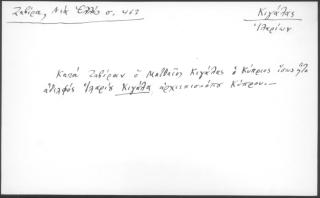 Ζαβίρα, Νέα Ἑλλάς σ. 463
Κιγάλας
Ἱλαρίων
Κατά Ζαβίραν ὁ Ματθαῖος Κιγάλας ὁ Κύπριος ἴσως ἦτο
ἀδελφός Ἱλαρίου Κιγάλα ἀρχιεπισκόπου Κύπρου.—